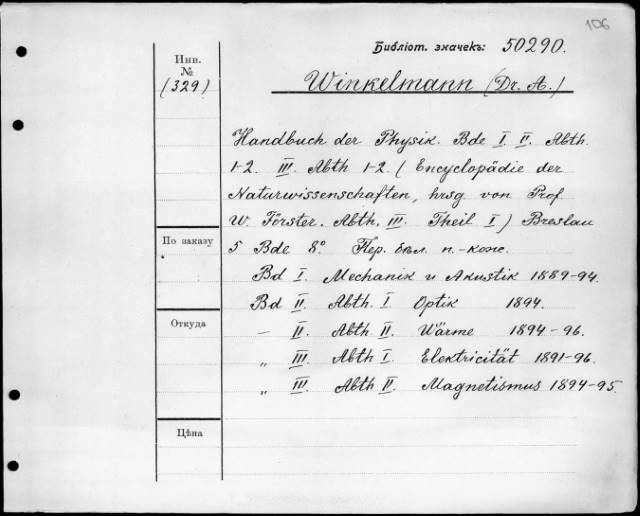 106
Библіот. значекъ: 50290.
Инв.
№
(329)
Winkelmann (Dr. A.)
Handbuch der Physik. Bde I. II. Abth.
1-2. III. Abth 1-2. (Encyclopädie der
Naturwissenschaften, hrsg. von Prof.
W. Förster. Abth. III. Theil I) Breslau
По заказу
5 Bde 8°. Пер. бѣл. п.-кож.
Bd I. Mechanik u Akustik 1889-94.
Bd II. Abth. I Optik 1894.
Откуда
— II. Abth. II. Wärme 1894-96.
„ III. Abth I. Elektricität 1891-96.
„ III. Abth II. Magnetismus 1894-95.
Цѣна